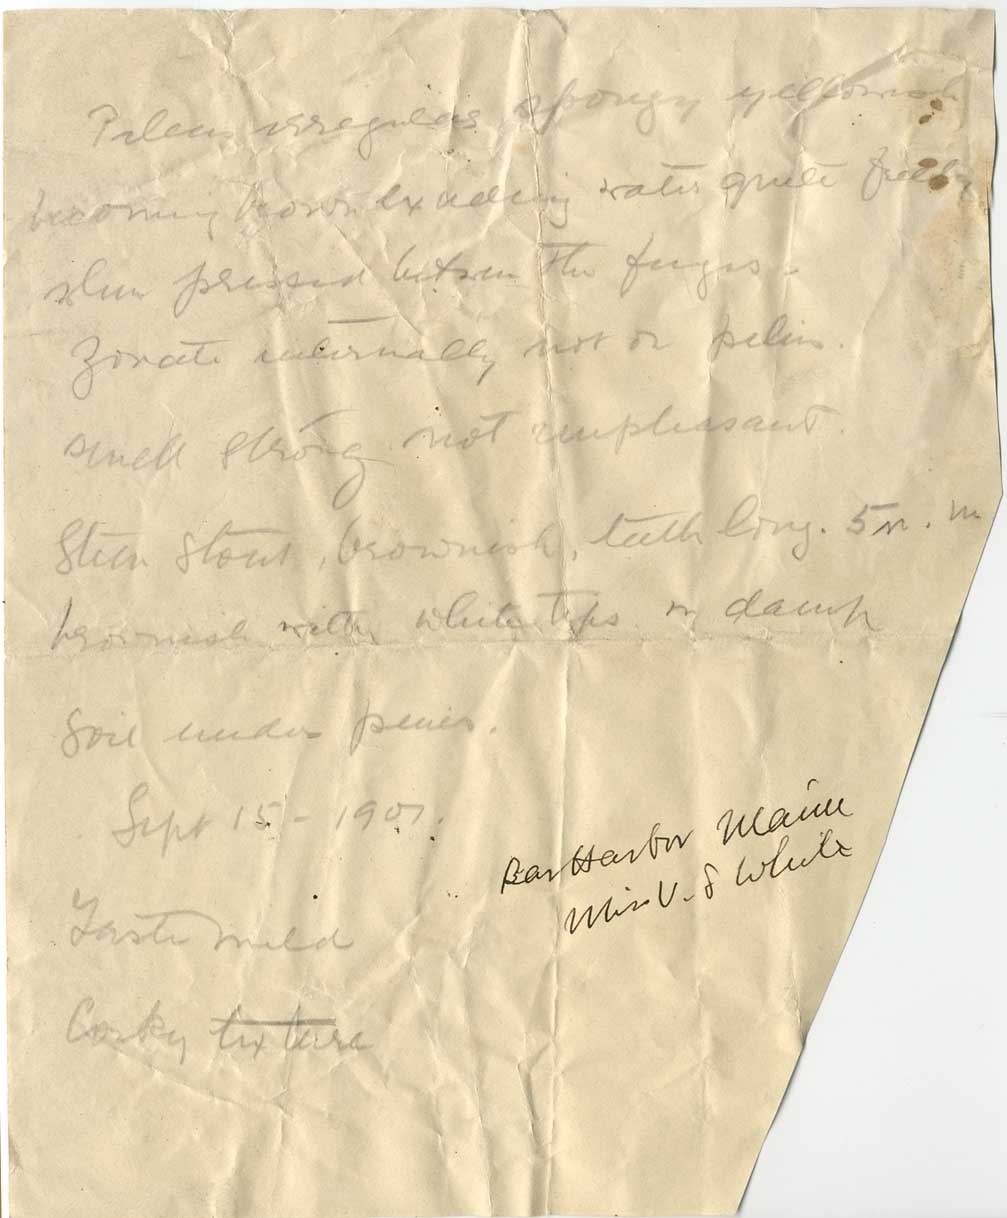 Pileus irregular spongy yellowish
becoming brown exuding water quite freely
when pressed between the fingers.
Zonate internally not on pileus.
smell strong not unpleasant.
Stem stout, brownish, teeth long. 5 m.m
brownish with white tips in damp
soil under pines.
Sept 15 - 1907.
Bar Harbor Maine
Miss V. S White
Taste mild
Corky texture